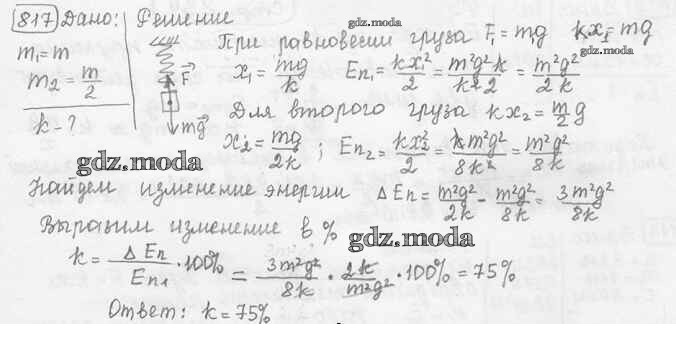 817 Дано: Решение gdz.moda
m₁=m При равновесии груза F₁=mg kx₁=mg
m₂=m/2 x₁=mg/k Eп₁=kx₁²/2=m²g²k/k²2=m²g²/2k gdz.moda
F
k-? Для второго груза kx₂=m/2 g
mg
x₂=mg/2k ; Eп₂=kx₂²/2=km²g²/8k²=m²g²/8k
gdz.moda
Найдем изменение энергии ΔEп=m²g²/2k-m²g²/8k=3m²g²/8k
Выразим изменение в %
gdz.moda
k=ΔEп/Eп₁·100%=3m²g²/8k·2k/m²g²·100%=75%
Ответ: k=75%